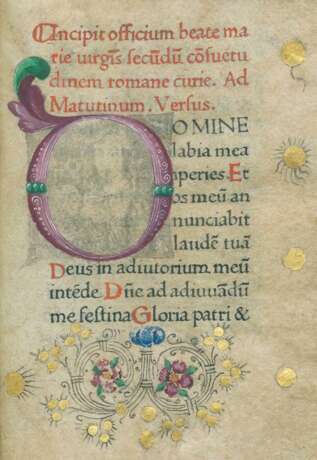 Incipit officium beate ma
rie uirgis secūdū cōsuetu
dinem romane curie. Ad
Matutinum. Versus.
DOMINE
labia mea
aperies. Et
os meū an
nunciabit
laudē tuā
Deus in adiutorium meū
intēde. Dñe ad adiuuādū
me festina Gloria patri &